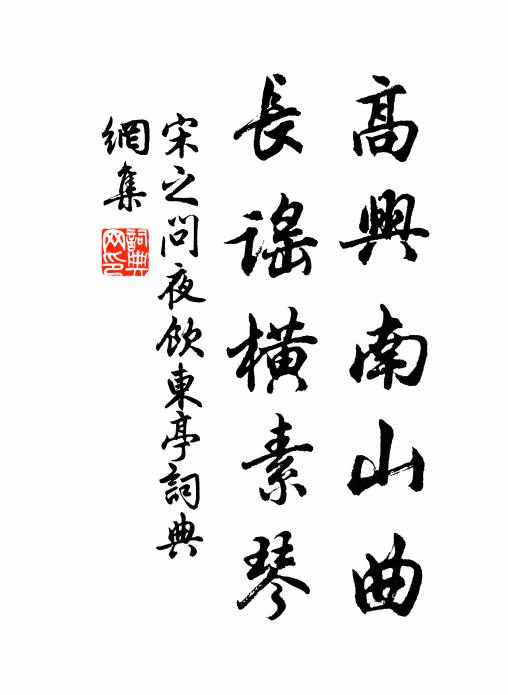 高興南山曲
長謠橫素琴
宋之问夜飲東亭詞典
網集
詞典
网印